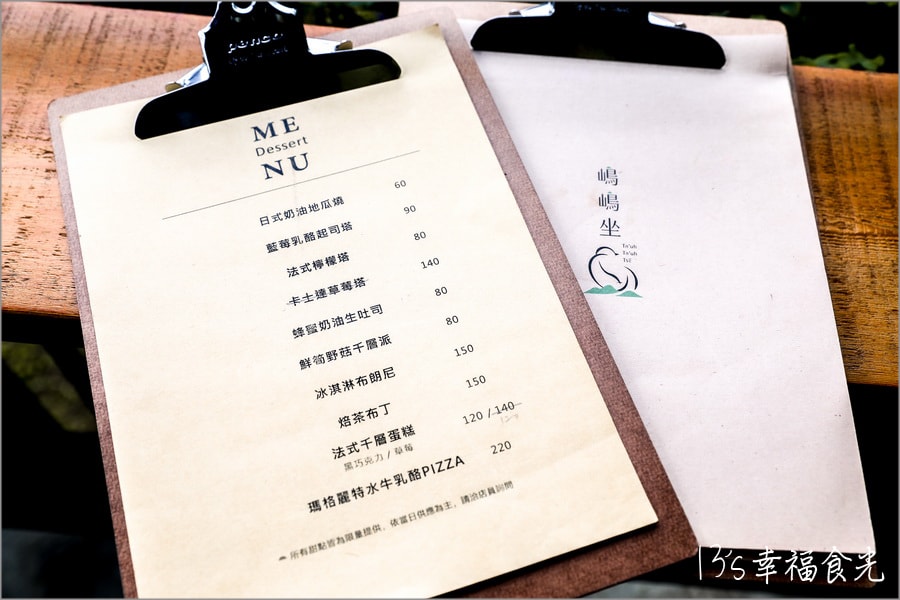 ME
Dessert
NU
日式奶油地瓜燒 60
藍莓乳酪起司塔 90
法式檸檬塔 80
卡士達草莓塔 140
蜂蜜奶油生吐司 80
鮮筍野菇千層派 80
冰淇淋布朗尼 150
焙茶布丁 150
法式千層蛋糕 120 / 140
黑巧克力 / 草莓
瑪格麗特水牛乳酪PIZZA 220
所有甜點皆為限量提供，依當日供應為主，請洽店員詢問
嶋嶋坐
13's幸福食光